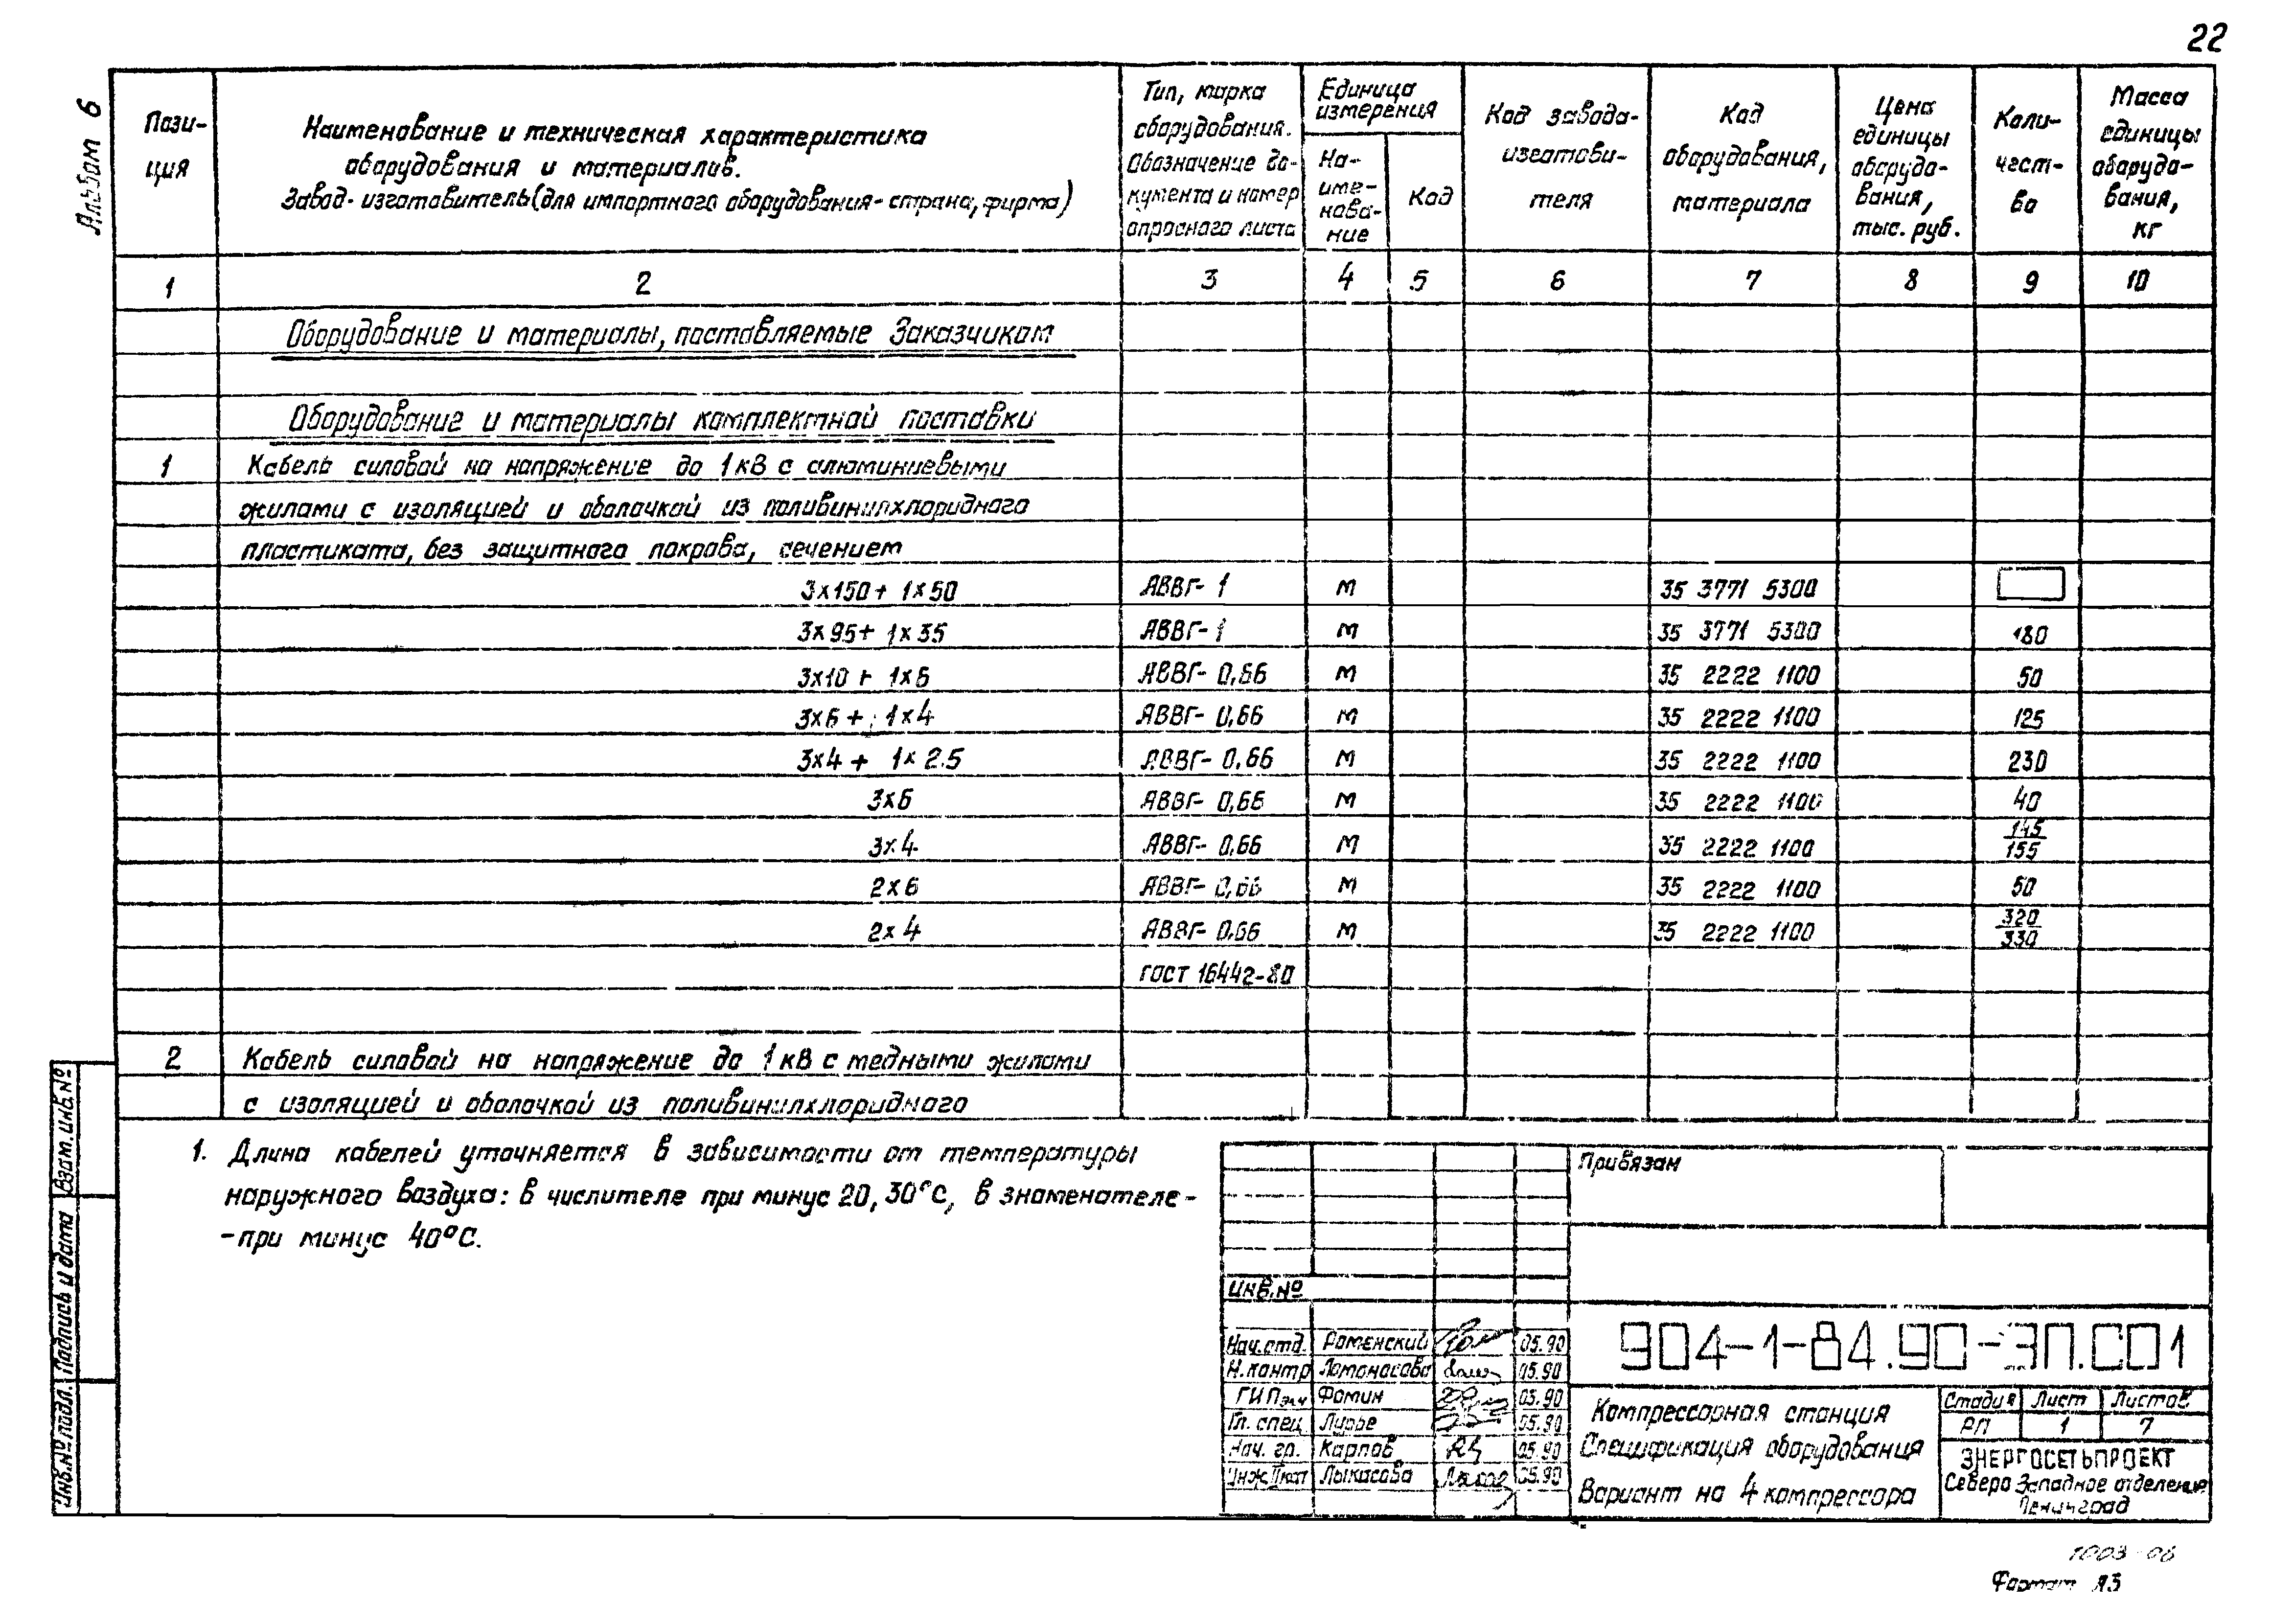 22
Альбом 6
Пози-
ция
Наименование и техническая характеристика
оборудования и материалов.
Завод-изготовитель (для импортного оборудования - страна, фирма)
Тип, марка
оборудования.
Обозначение до-
кумента и номер
опросного листа
Единица
измерения
На-
име-
нова-
ние
Код
Код завода-
изготови-
теля
Код
оборудования,
материала
Цена
единицы
оборудо-
вания,
тыс. руб.
Коли-
чест-
во
Масса
единицы
оборудо-
вания,
кг
1 2 3 4 5 6 7 8 9 10
Оборудование и материалы, поставляемые Заказчиком
Оборудование и материалы комплектной поставки
1 Кабель силовой на напряжение до 1кВ с алюминиевыми
жилами с изоляцией и оболочкой из поливинилхлоридного
пластиката, без защитного покрова, сечением
3х150+ 1х50 АВВГ-1 м 35 3771 5300
3х95+ 1х35 АВВГ-1 м 35 3771 5300 180
3х10 + 1х6 АВВГ-0,66 м 35 2222 1100 50
3х6 + 1х4 АВВГ-0,66 м 35 2222 1100 125
3х4 + 1х2.5 АВВГ-0,66 м 35 2222 1100 230
3х6 АВВГ-0,66 м 35 2222 1100 40
3х4 АВВГ-0,66 м 35 2222 1100 145/155
2х6 АВВГ-0,66 м 35 2222 1100 50
2х4 АВВГ-0,66 м 35 2222 1100 320/330
ГОСТ 16442-80
2 Кабель силовой на напряжение до 1кВ с медными жилами
с изоляцией и оболочкой из поливинилхлоридного
1. Длина кабелей уточняется в зависимости от температуры
наружного воздуха: в числителе при минус 20, 30°С, в знаменателе -
-при минус 40°С.
Взам. инв. №
Подпись и дата
Инв. № подл.
Привязан
Инв. №
Нач. отд. Роменский 05.90
Н. контр Ломоносова 05.90
ГИП эл.ч Фомин 05.90
Гл. спец. Лурье 05.90
Нач. гр. Карпов 05.90
Лыкасова 05.90
904-1-84.90-ЭП.СО1
Компрессорная станция
Спецификация оборудования
Вариант на 4 компрессора
Стадия Лист Листов
РП 1 7
ЭНЕРГОСЕТЬПРОЕКТ
Северо Западное отделение
Ленинград
1003-06
Формат А3